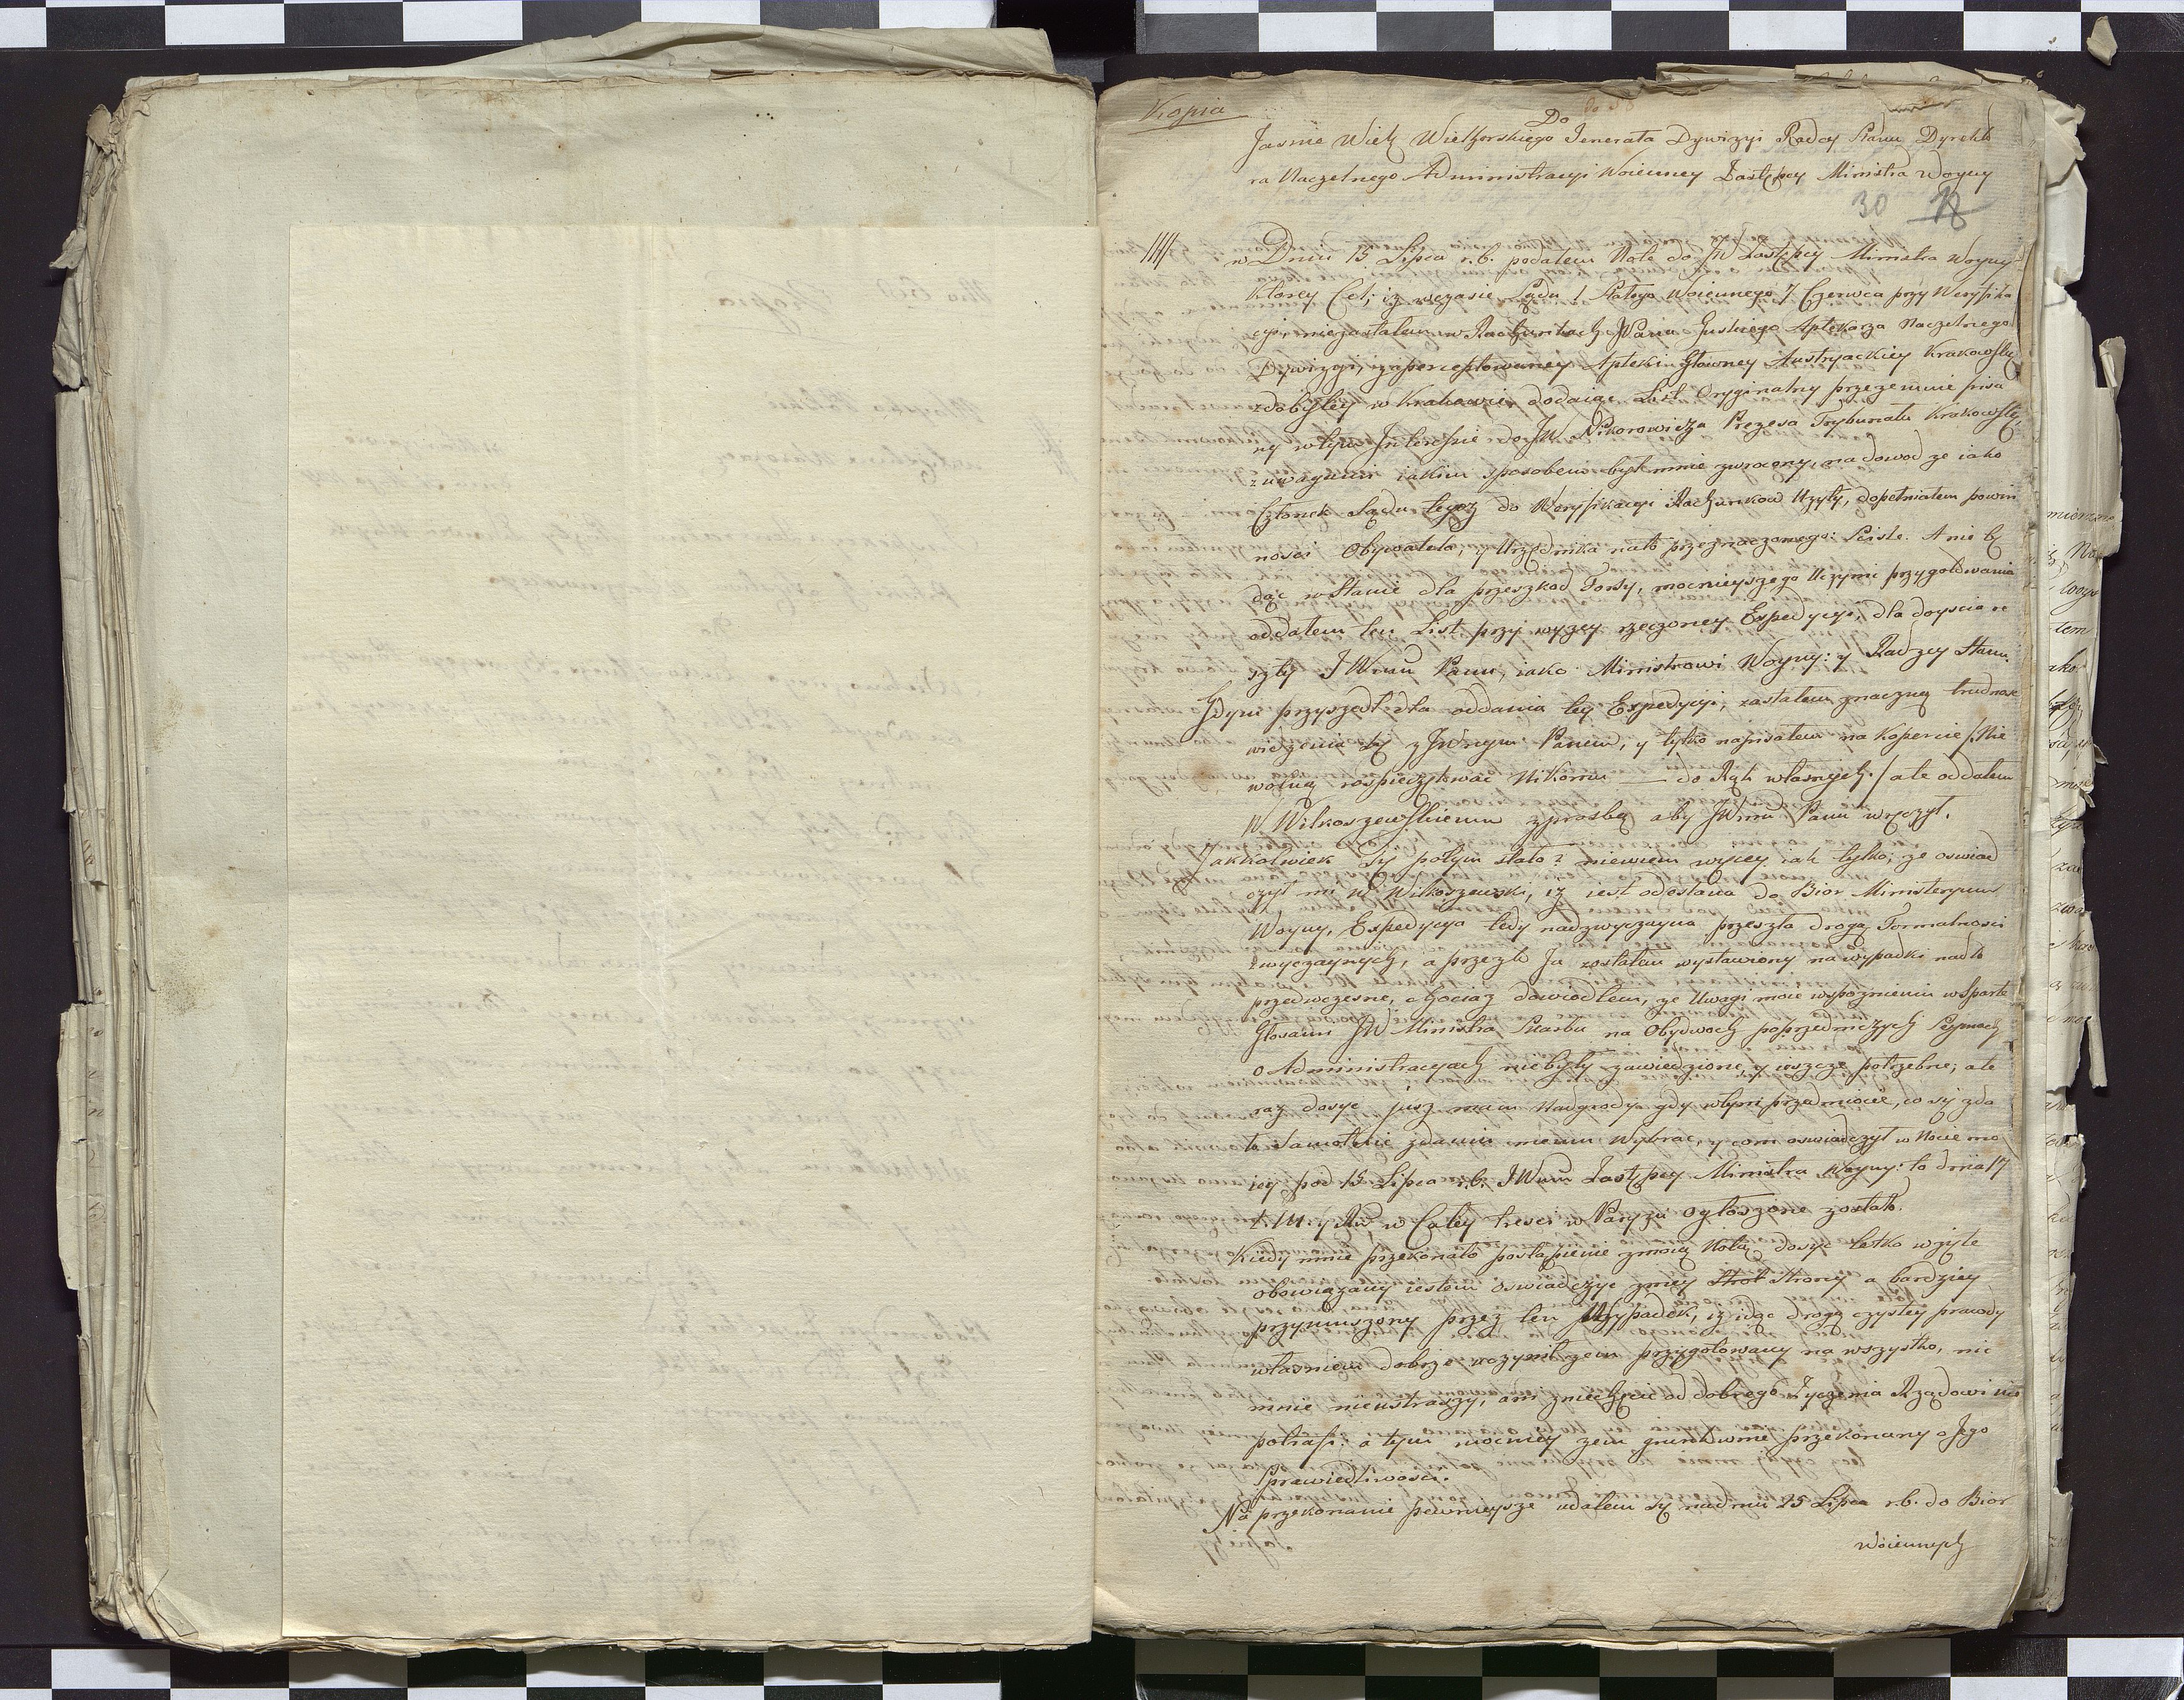 Kopia
Do
Jasnie Wielz Wielhorskiego Jenerała Dywizyi Radcy Stanu Dyrekto
ra Naczelnego Administracyi Woienney Zastępcy Ministra Woyny
30 18
w Dniu 15 Lipca r. b. podałem Notę do JW Zastępcy Ministra Woyny
ktorey Cel; iz wczasie Sądu Stałego Woiennego 7 Czerwca przy Weryfika
cyi, niezastałem w Rachunkach JPana Guskiego Aptekarza Naczelnego
Dywizyi, zaperceptowaney Apteki Głowney Austryackiey Krakowskiey
zdobytey w Krakowie, dodaiąc List Oryginalny przezemnie pisa
ny wtym Interessie do JW Nikorowicza Prezesa Trybunału Krakowskg,
z uwagami iakim sposobem był mnie zwrocony, na dowod ze iako
Członek Sądu tegoz do Weryfikacyi Rachunkow Uzyty, dopełniałem powin
nosci Obywatela, y Urzędnika nato przeznaczonego: Sciśle. A nie bę
dąc w Stanie dla przeszkod Forsy, mocnieyszego Uczynic przygotowania
oddałem ten List przy wyzey rzeczoney Expedycyi, dla doyscia re
szty JWmu Panu, iako Ministrowi Woyny: y Radzcy Stanu.
Gdym przyszedł dla oddania tey Expedycyi, zastałem znaczną trudnosc
widzenia się z JWnym Panem, y tylko napisałem na Kopercie /: Nie
wolną rospieczętowac Nikomu — do Rąk własnych :/ ale oddałem
W Wilkoszewskiemu z prosbą aby JWmu Panu wręczył.
Jakkolwiek się potym stało? niewiem więcey iak tylko, ze oswiad
czył mi W Wilkoszewski, iz iest odesłana do Bior Ministeryum
Woyny, Expedycya tedy nadzwyczayna przeszła drogą Formalnosci
zwyczaynych, a przezto Ja zostałem wystawiony na wypadki nadto
przedwczesne, chociaz dowiodłem, ze Uwagi moie wspoznieniu wsparte
Głosami JW Ministra Skarbu na Obydwoch poprzedniczych Seymach
o Administracyach niebyły zawiedzione, y ieszcze potrzebne; ale
raz dosyc jusz mam Nadgrody gdy wtym przedmiocie, co się zda
to Samotnie zdaniu memu Wybrac, y com oswiadczył w Nocie mo
iey pod 15 Lipca r. b. JWmu Zastępcy Ministra Woyny: to dnia 17
w Całey tresci w Paryzu ogłoszone zostało.
Kiedy mnie przekonało postąpienie zmoią Notą dosyc letko wzięte
obowiązany iestem oswiadczyc zmey Stro Strony a bardziey
przymuszony przez ten Wypadek, iz idąc drogą czystey prawdy
własniem dobrze uczynił zem przygotowany na wszystko, nic
mnie nieustraszy, ani zniechęcic od dobrego Zyczenia Rządowi nie
potrafi: a tym mocniey zem gruntownie przekonany o Jego
Sprawiedliwosci.
Na przekonanie pewnieysze udałem się nadniu 25 Lipca r. b. do Bior
Woiennych